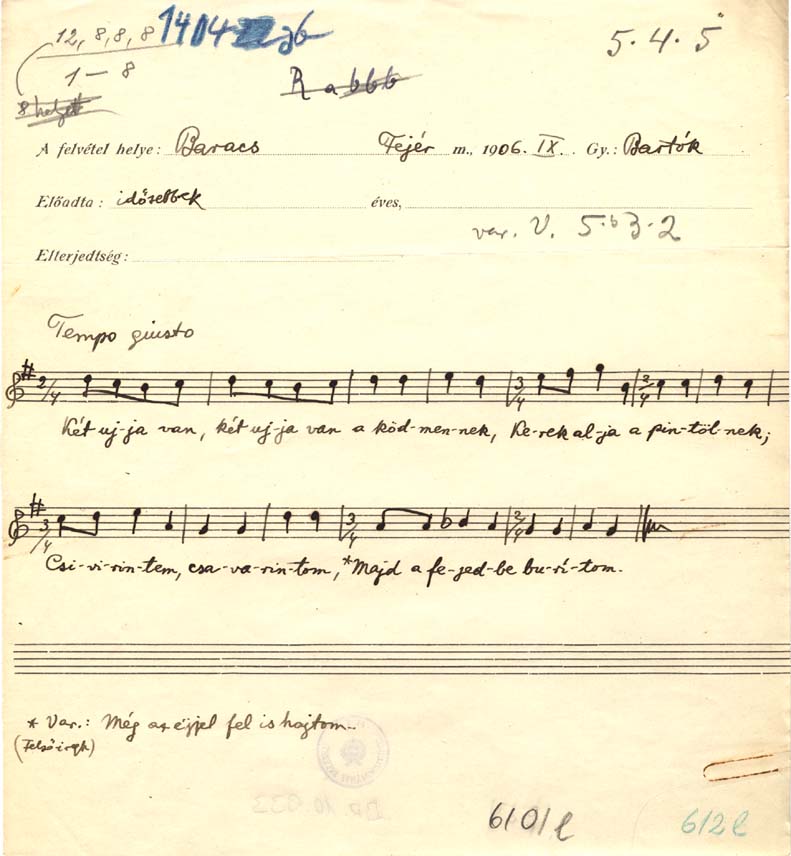 12, 8, 8, 8
1404
5·4·5
1 – 8
8 helyett
A felvétel helye: Baracs Fejér m., 1906. IX. Gy.: Bartók
Előadta: idősebbek éves,
var. V. 5·b3·2
Elterjedtség:
Tempo giusto
2/4 3/4 2/4
Két uj-ja van, két uj-ja van a köd-men-nek, Ke-rek al-ja a pin-töl-nek;
3/4 3/4 2/4
Csi-vi-rin-tem, csa-va-rin-tom, *Majd a fe-jed-be bu-rí-tom.
* Var.: Még az éjjel fel is hajtom.
(Felsőiregh)
610/l
612 l